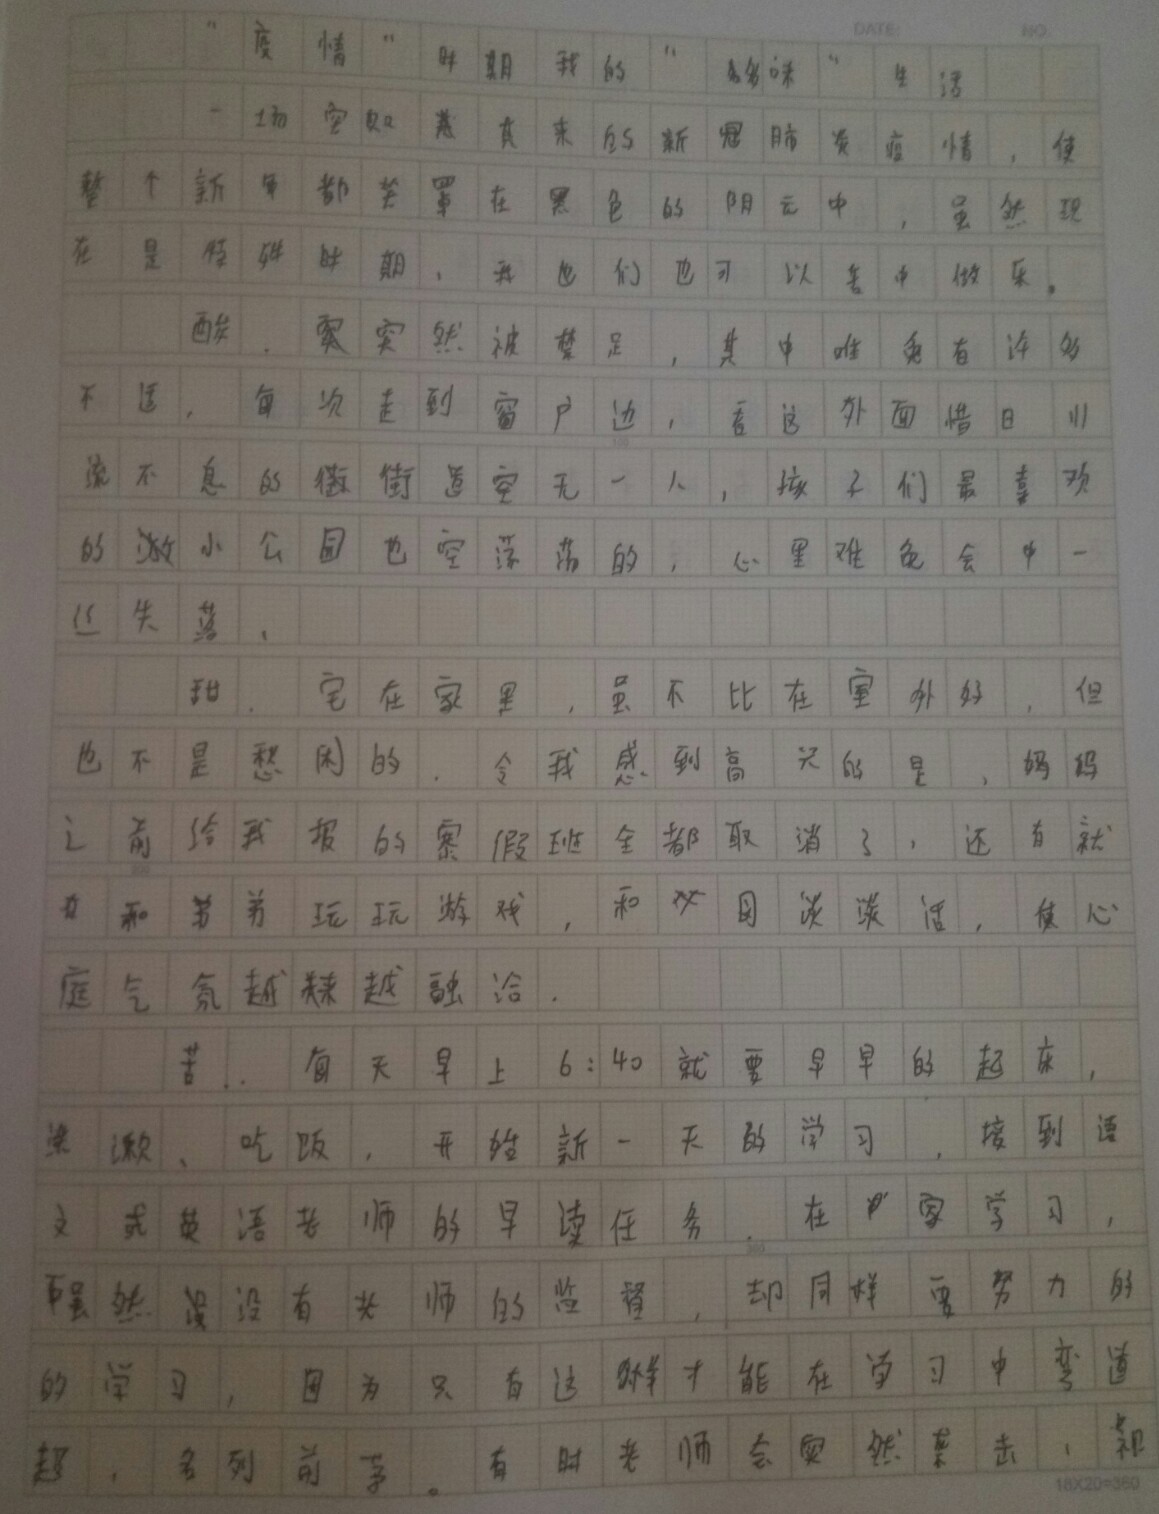 "疫情"时期我的"多味"生活
DATE: NO.
一场突如其来的新冠肺炎疫情,使
整个新年都笼罩在黑色的阴云中,虽然现
在是特殊时期,我也们也可以苦中做乐。
酸.突然被禁足,其中难免有许多
不适,每次走到窗户边,看这外面惜日川
流不息的街道空无一人,孩子们最喜欢
的小公园也空荡荡的,心里难免会中一
丝失落.
甜.宅在家里,虽不比在室外好,但
也不是愁闷的.令我感到高兴的是,妈妈
之前给我报的寒假班全都取消了,还有就
和弟弟玩玩游戏,和谈谈话,使
庭气氛越来越融洽.
苦..每天早上6:40就要早早的起床,
漱、吃饭,开始新一天的学习,接到语
文或英语老师的早读任务.在家学习,
虽然没有老师的监督,却同样要努力的
的学习,因为只有这样才能在学习中弯道
超,名列前茅。有时老师会突然来击,
18X20=360